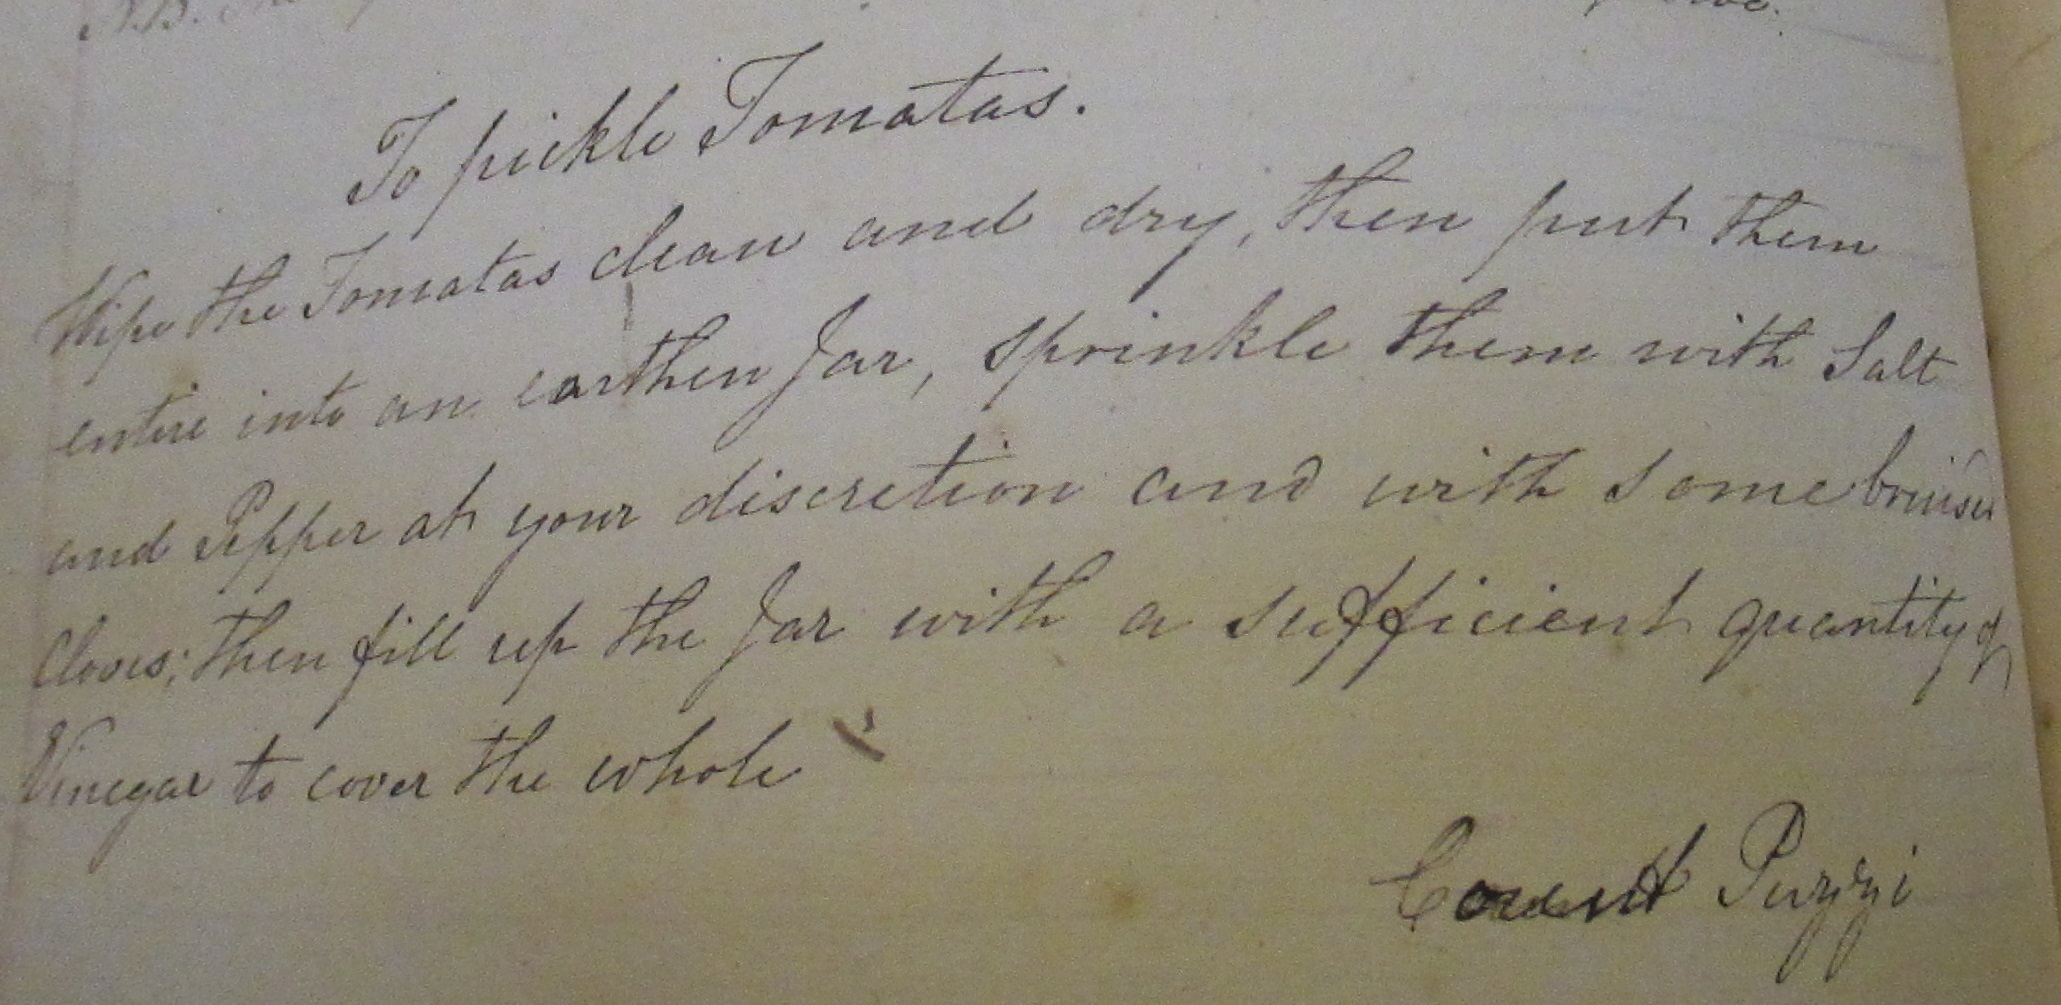 N.B.
To pickle Tomatas.
Wipe the Tomatas clean and dry, then put them
entire into an earthen Jar, sprinkle them with Salt
and Pepper at your discretion and with some bruised
Cloves; then fill up the Jar with a sufficient quantity of
Vinegar to cover the whole
Count Puzzi